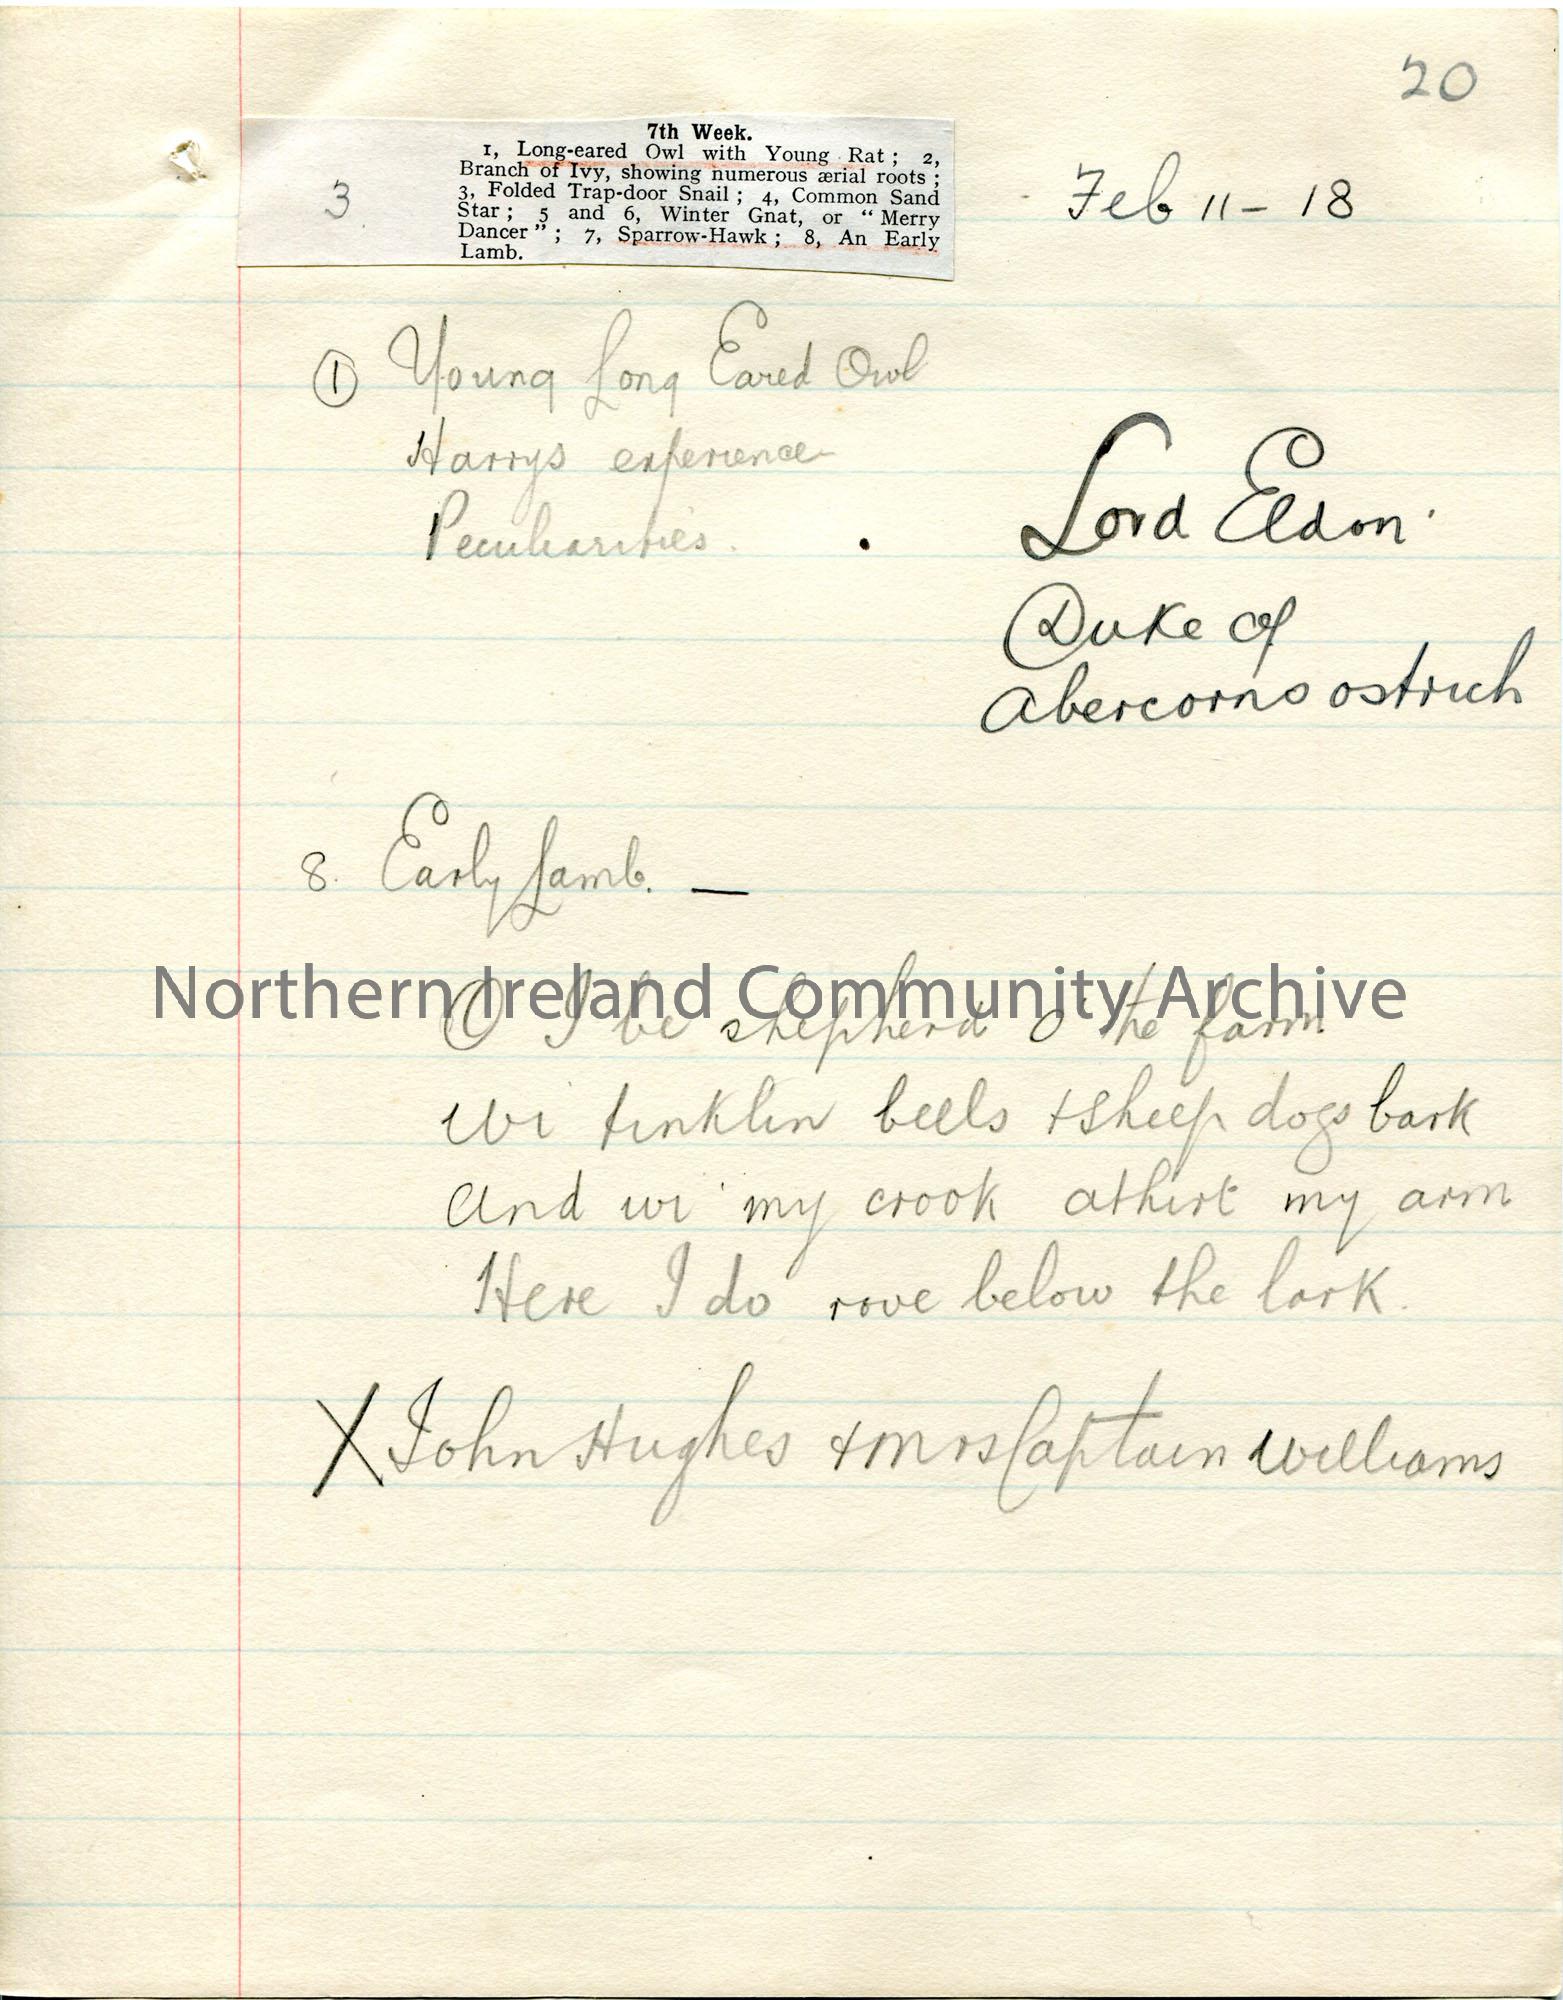 20
7th Week.
1, Long-eared Owl with Young Rat; 2,
Branch of Ivy, showing numerous ærial roots;
3, Folded Trap-door Snail; 4, Common Sand
Star; 5 and 6, Winter Gnat, or "Merry
Dancer"; 7, Sparrow-Hawk; 8, An Early
Lamb.
3
Feb 11 - 18
① Young Long Eared Owl
Harrys experience
Peculiarities.
Lord Eldon.
Duke of
Abercorns ostrich
8. Early Lamb. —
Northern Ireland Community Archive
O I be shepherd o' the farm
wi tinklin bells + sheep dogs bark
And wi' my crook athirt my arm
Here I do rove below the lark.
X John Hughes + Mrs Captain Williams